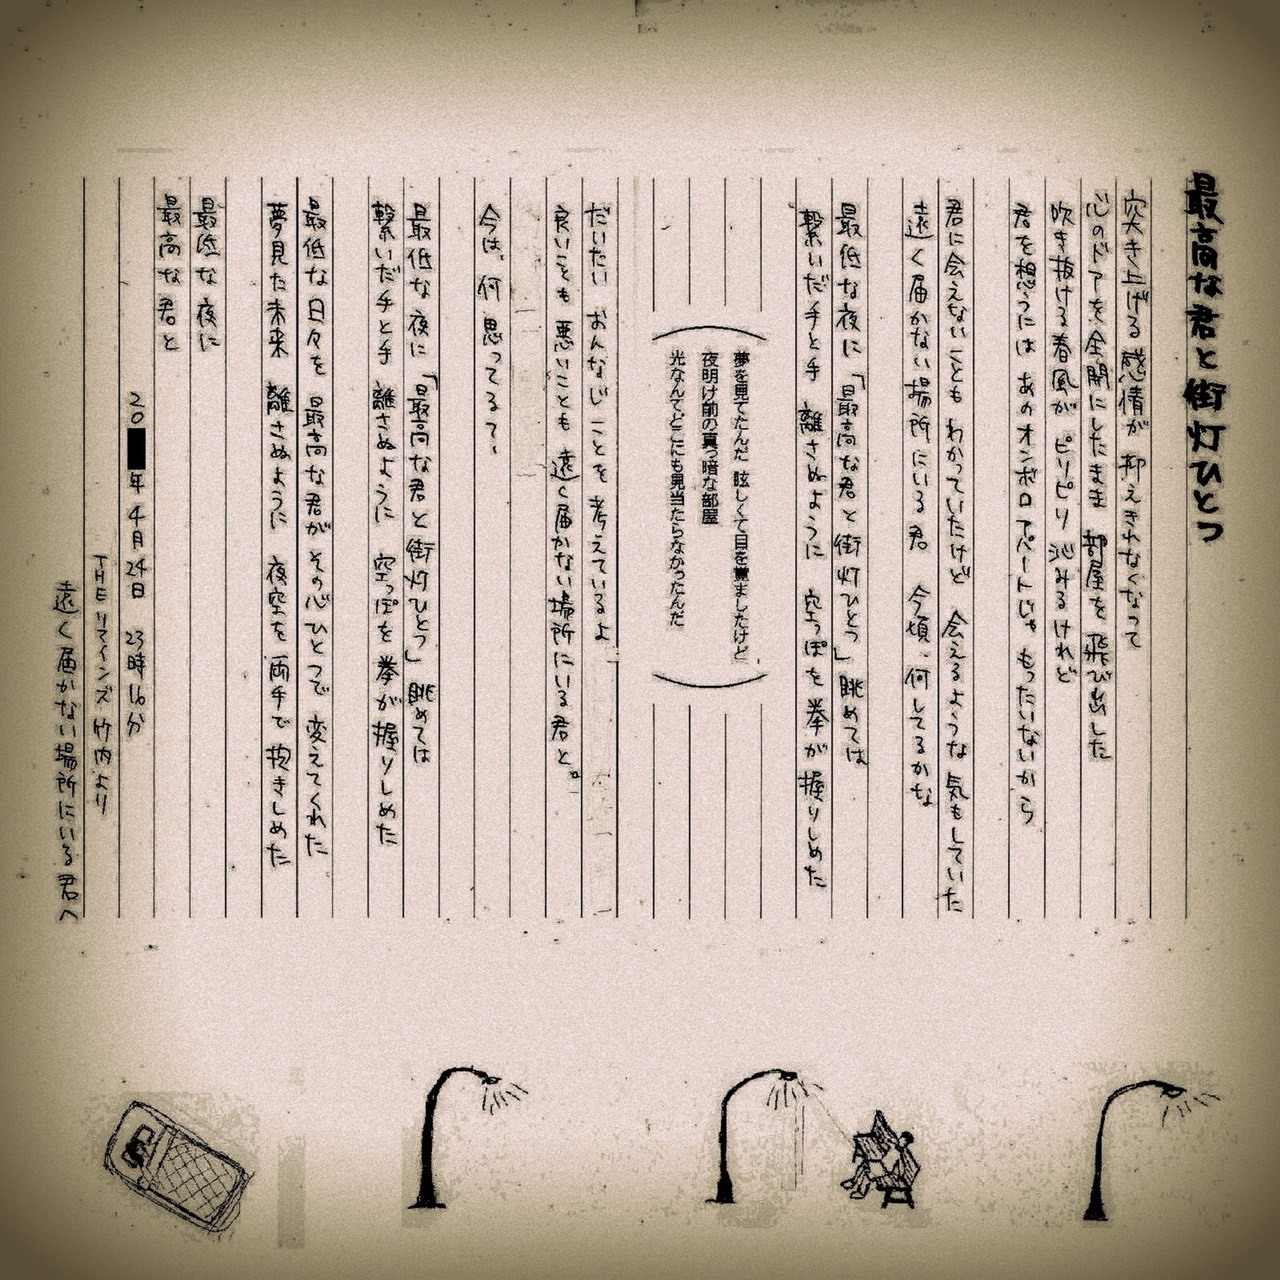 最高な君と街灯ひとつ
突き上げる感情が 抑えきれなくなって
心のドアを全開にしたまま 部屋を飛び出した
吹き抜ける春風が ピリピリ沁みるけれど
君を想うには あのオンボロアパートじゃ もったいないから
君に会えないことも わかっていたけど 会えるような 気もしていた
遠く届かない場所にいる君 今頃、何してるかな
最低な夜に 「最高な君と街灯ひとつ」眺めては
繋いだ手と手 離さぬように 空っぽを拳が握りしめた
夢を見てたんだ 眩しくて目を覚ましたけど
夜明け前の真っ暗な部屋
光なんてどこにも見当たらなかったんだ
だいたい おんなじことを 考えているよ
良いことも 悪いことも 遠く届かない場所にいる君と。
今は、何 思ってるて、
最低な夜に 「最高な君と街灯ひとつ」眺めては
繋いだ手と手 離さぬように 空っぽを拳が握りしめた
最低な日々を 最高な君が その心ひとつで 変えてくれた
夢見た未来 離さぬように 夜空を両手で抱きしめた
最低な夜に
最高な君と
20 年4月24日 23時16分
THEリマインズ 竹内より
遠く届かない場所にいる君へ